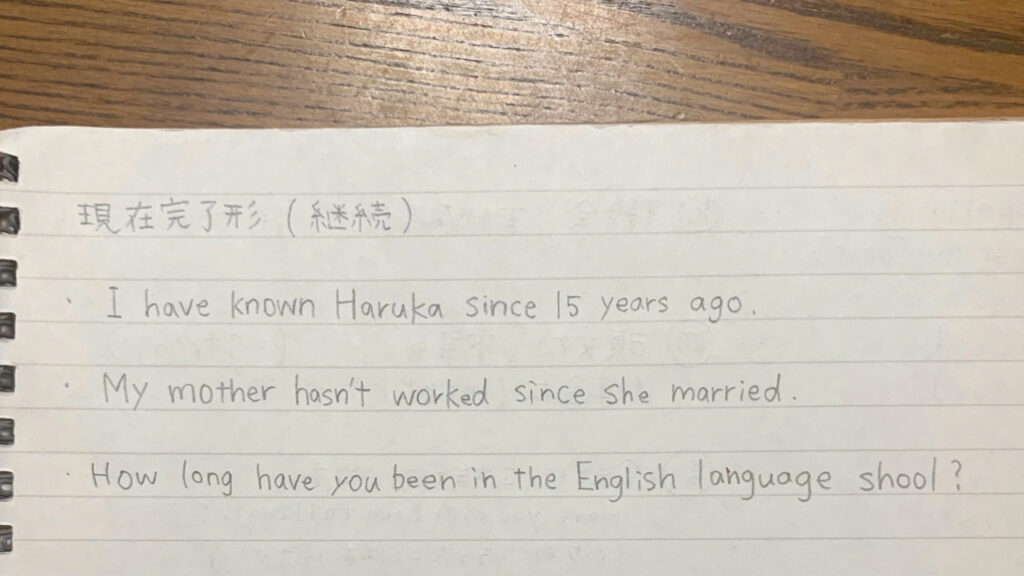 現在完了形（継続）
・ I have known Haruka since 15 years ago.
・ My mother hasn't worked since she married.
・ How long have you been in the English language shool?